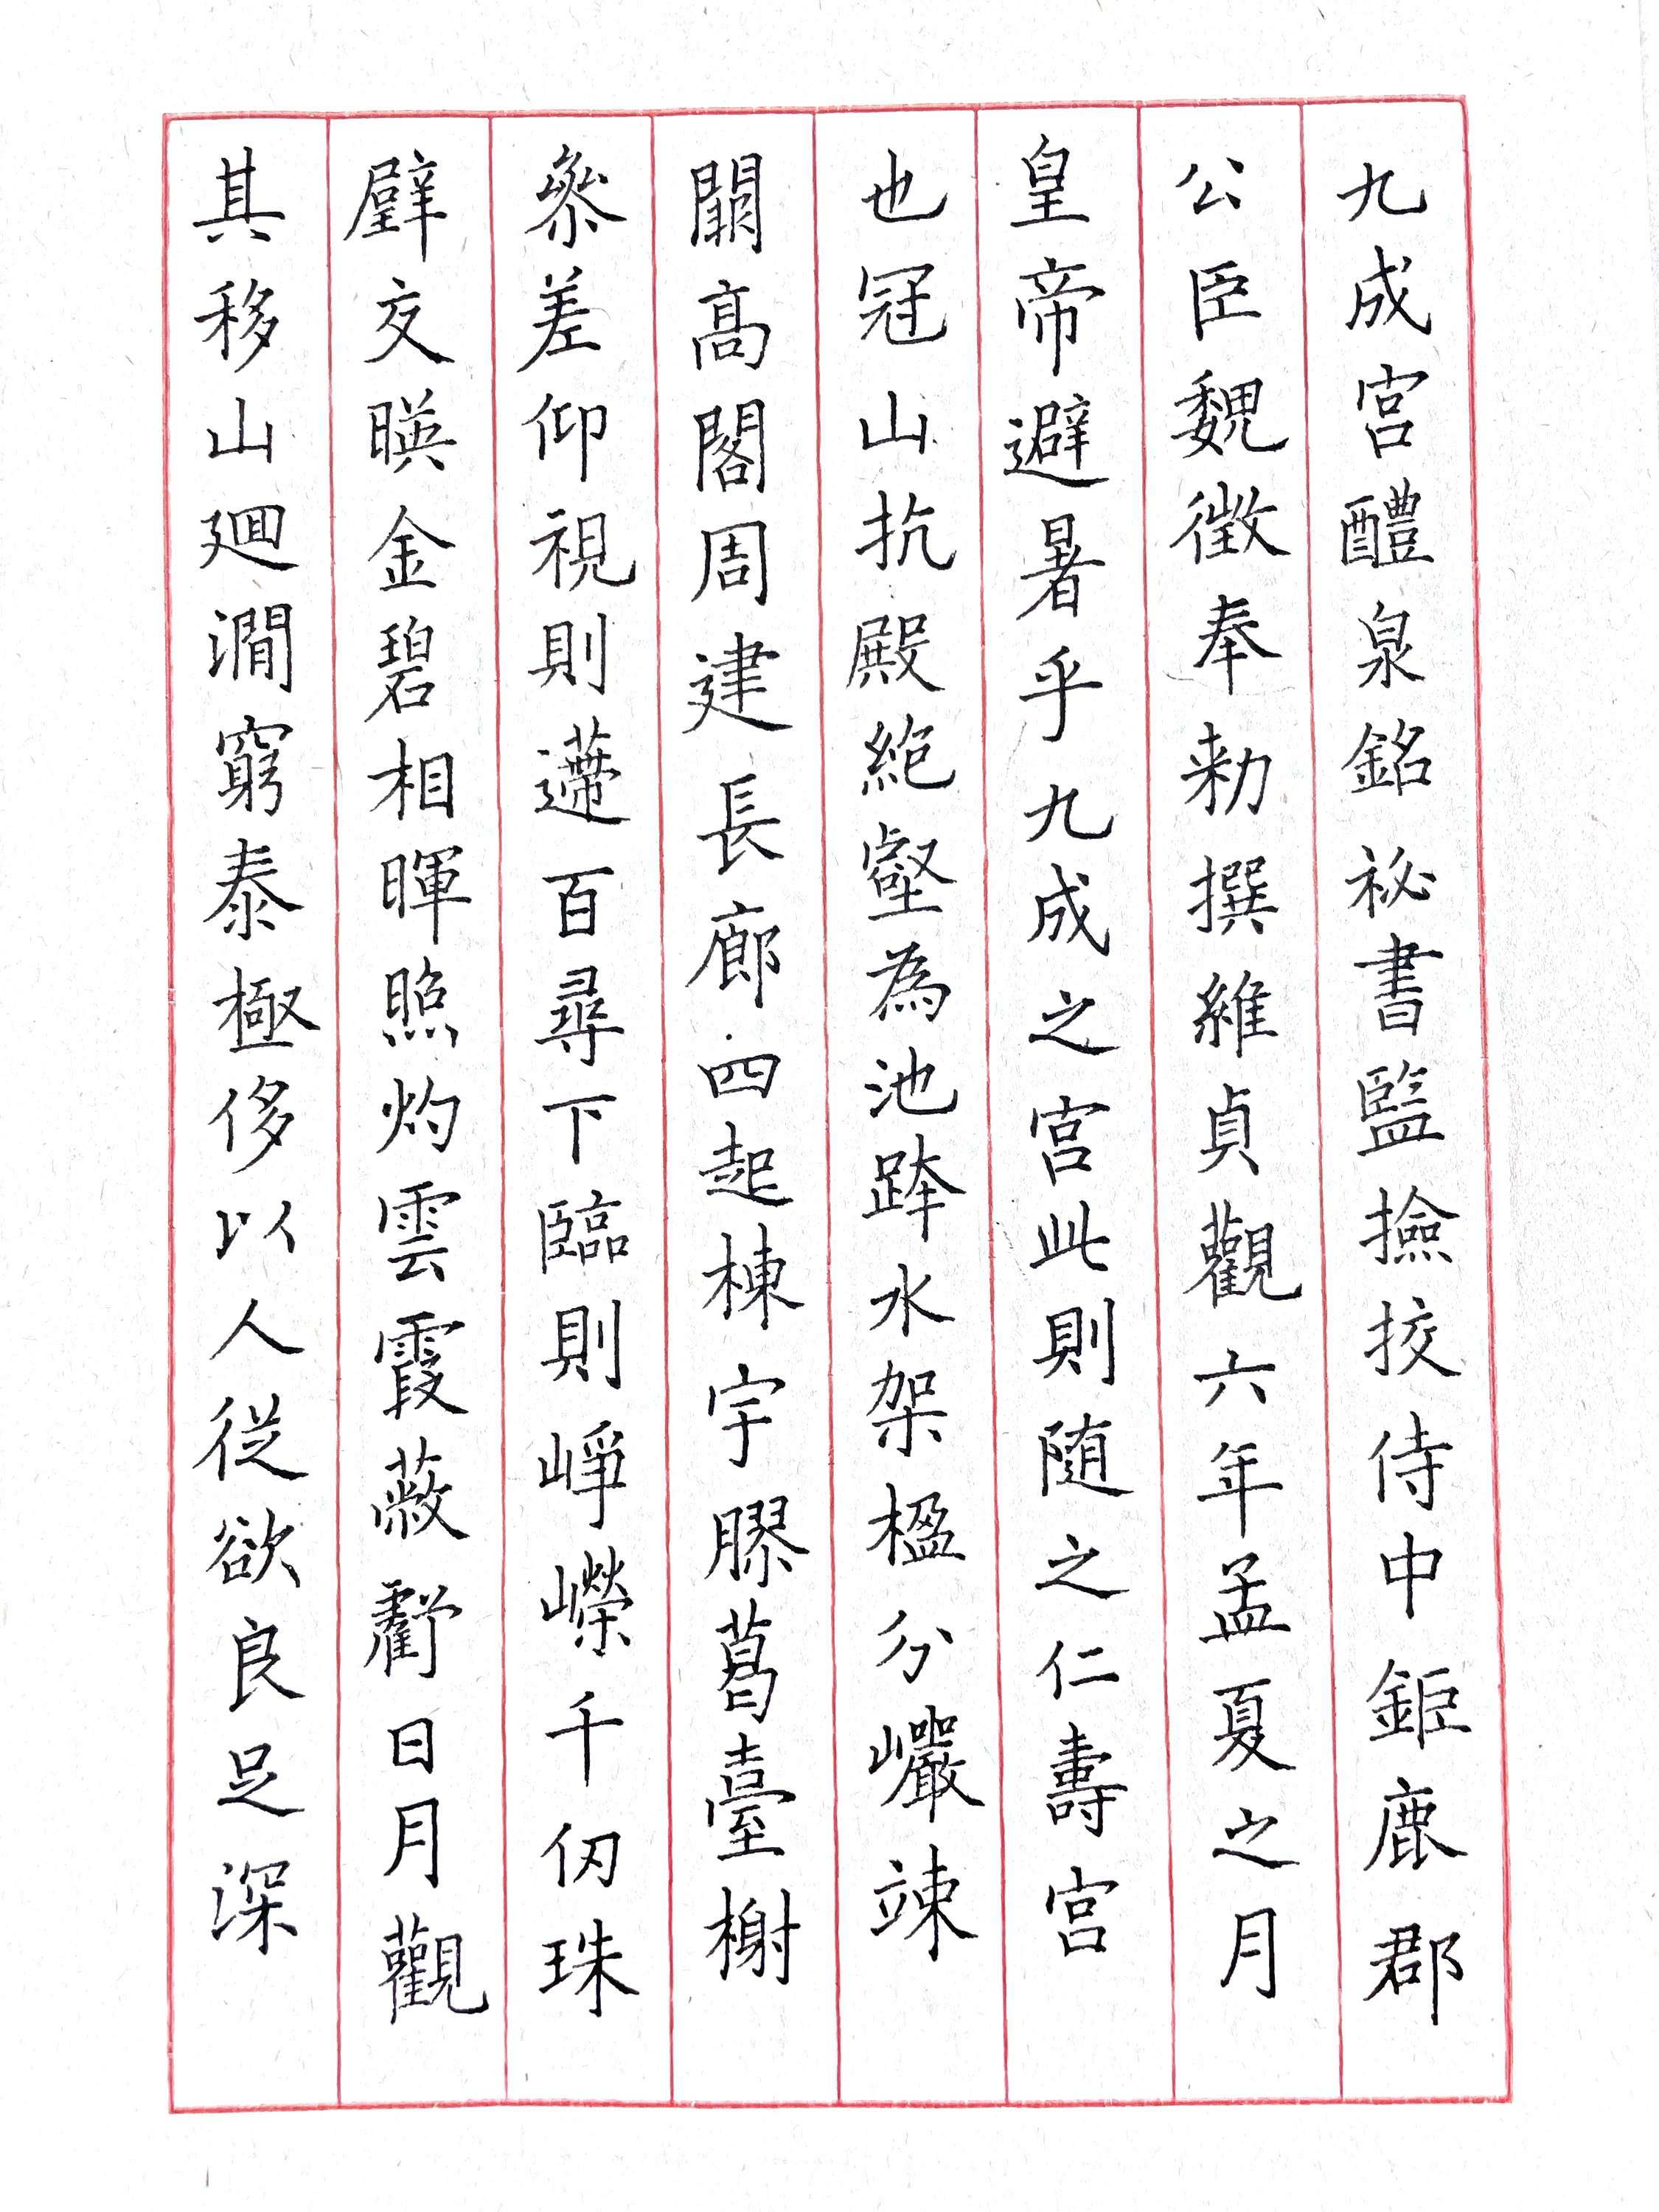 九成宮醴泉銘祕書監撿挍侍中鉅鹿郡
公臣魏徵奉勑撰維貞觀六年孟夏之月
皇帝避暑乎九成之宮此則随之仁壽宮
也冠山抗殿絶壑為池跨水架楹分巖竦
闕高閣周建長廊四起棟宇膠葛臺榭
叅差仰視則遰百尋下臨則崢嶸千仞珠
壁交暎金碧相暉照灼雲霞蔽虧日月觀
其移山迴澗窮泰極侈以人從欲良足深